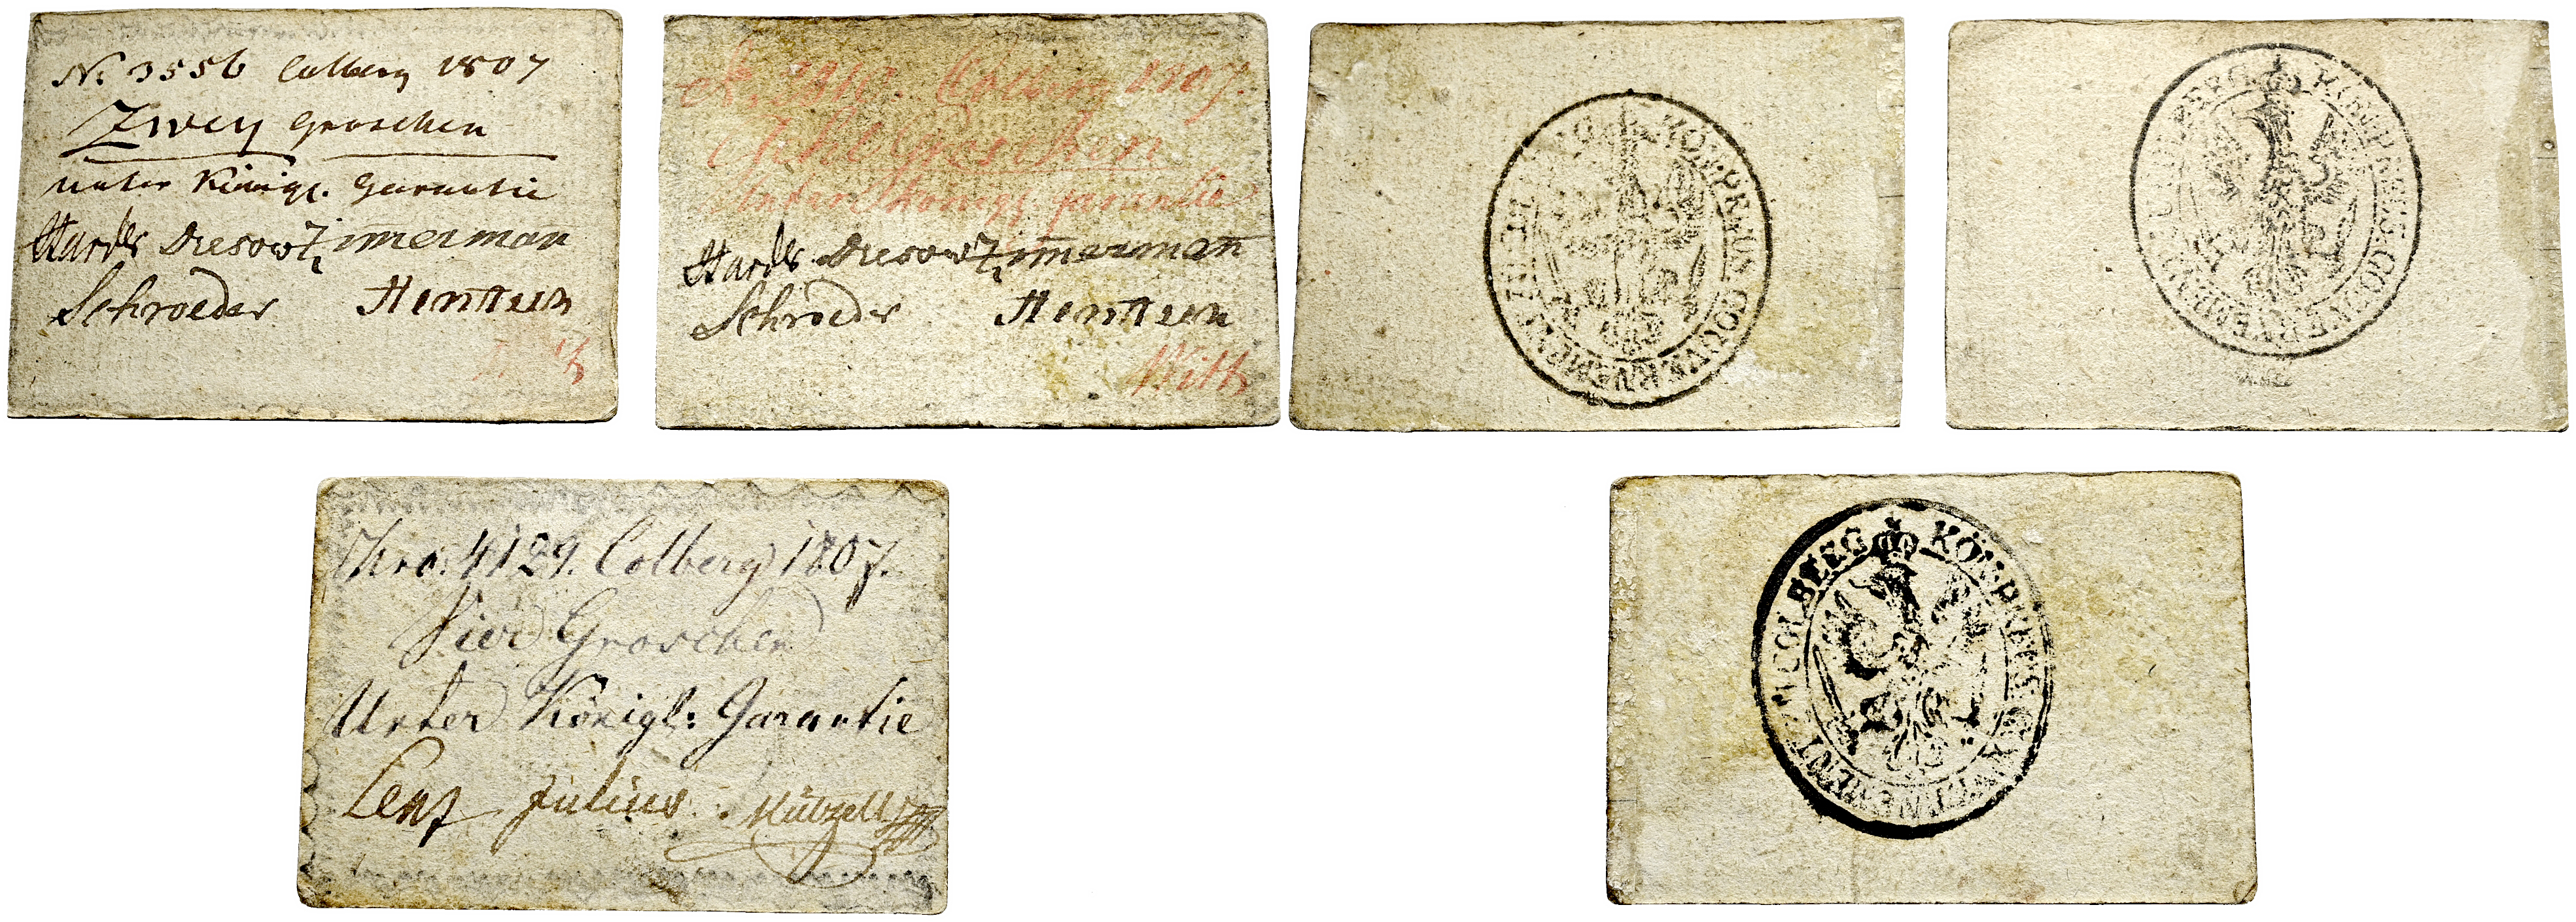 No. 3556 Colberg 1807
Zwey Groschen
unter Königl. Garantie
Dresow Zimmerman
Schroeder Hentsch
Colberg 1807.
Acht Groschen
Unter Königl. Garantie
Dresow Zimmerman
Schröder
Witt
KÖN. PREUS. GOUVERNEMENT
KÖN. PREUS. GOUVERNEMENT Z. COLBERG
Nro. 4129. Colberg 1807.
Vier Groschen
Unter Königl: Garantie
Lenz Julius. Kützell
KÖN. PREUS. GOUVERNEMENT Z. COLBERG